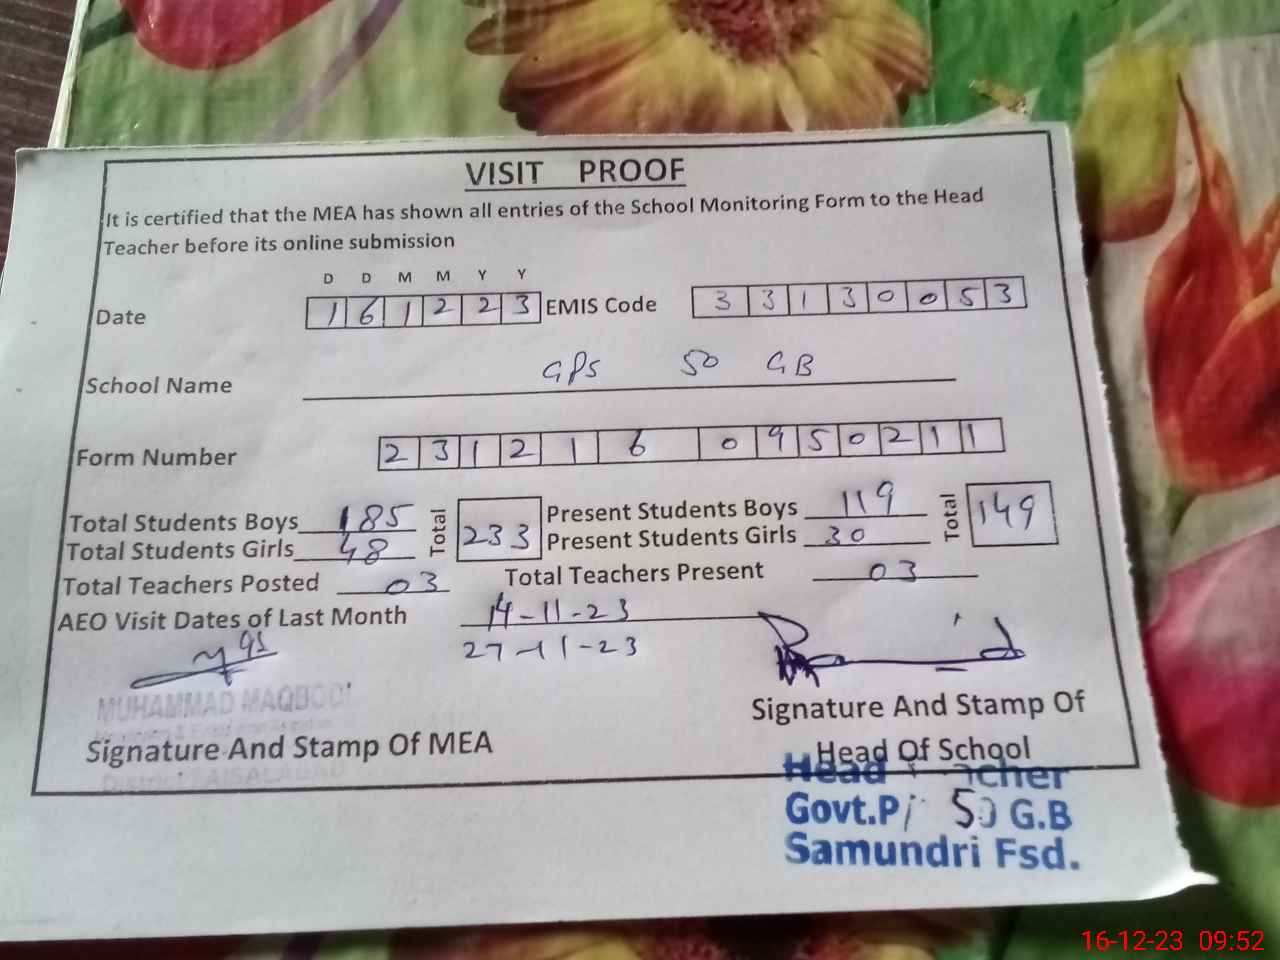 VISIT PROOF
It is certified that the MEA has shown all entries of the School Monitoring Form to the Head
Teacher before its online submission
D D M M Y Y
Date 1 6 1 2 2 3 EMIS Code 3 3 1 3 0 0 5 3
School Name GPS 50 GB
Form Number 2 3 1 2 1 6 0 9 5 0 2 1 1
Total Students Boys 185 Total 233 Present Students Boys 119 Total 149
Total Students Girls 48 Present Students Girls 30
Total Teachers Posted 03 Total Teachers Present 03
AEO Visit Dates of Last Month 14-11-23
27-11-23
MUHAMMAD MAQBOOL
Signature And Stamp Of MEA
District FAISALABAD
Signature And Stamp Of
Head Of School
Head
Govt. 50 G.B
Samundri Fsd.
16-12-23 09:52